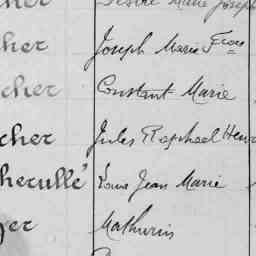 her Désiré Marie Joseph
cher Joseph Marie Fçois
cher Constant Marie
cher Jules Raphael Henri
herullé Louis Jean Marie
ger Mathurin